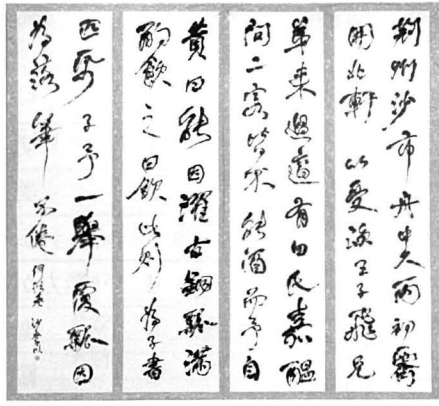 荊州沙市舟中久雨初霽
開北軒以受涼王子飛兄
弟來過適有田氏嘉醞
問二客皆不能酒而予自
贊曰能因濯古銅瓢滿
酌飲之曰飲此則為子書
匹紙子予一舉覆瓢因
為落筆不倦